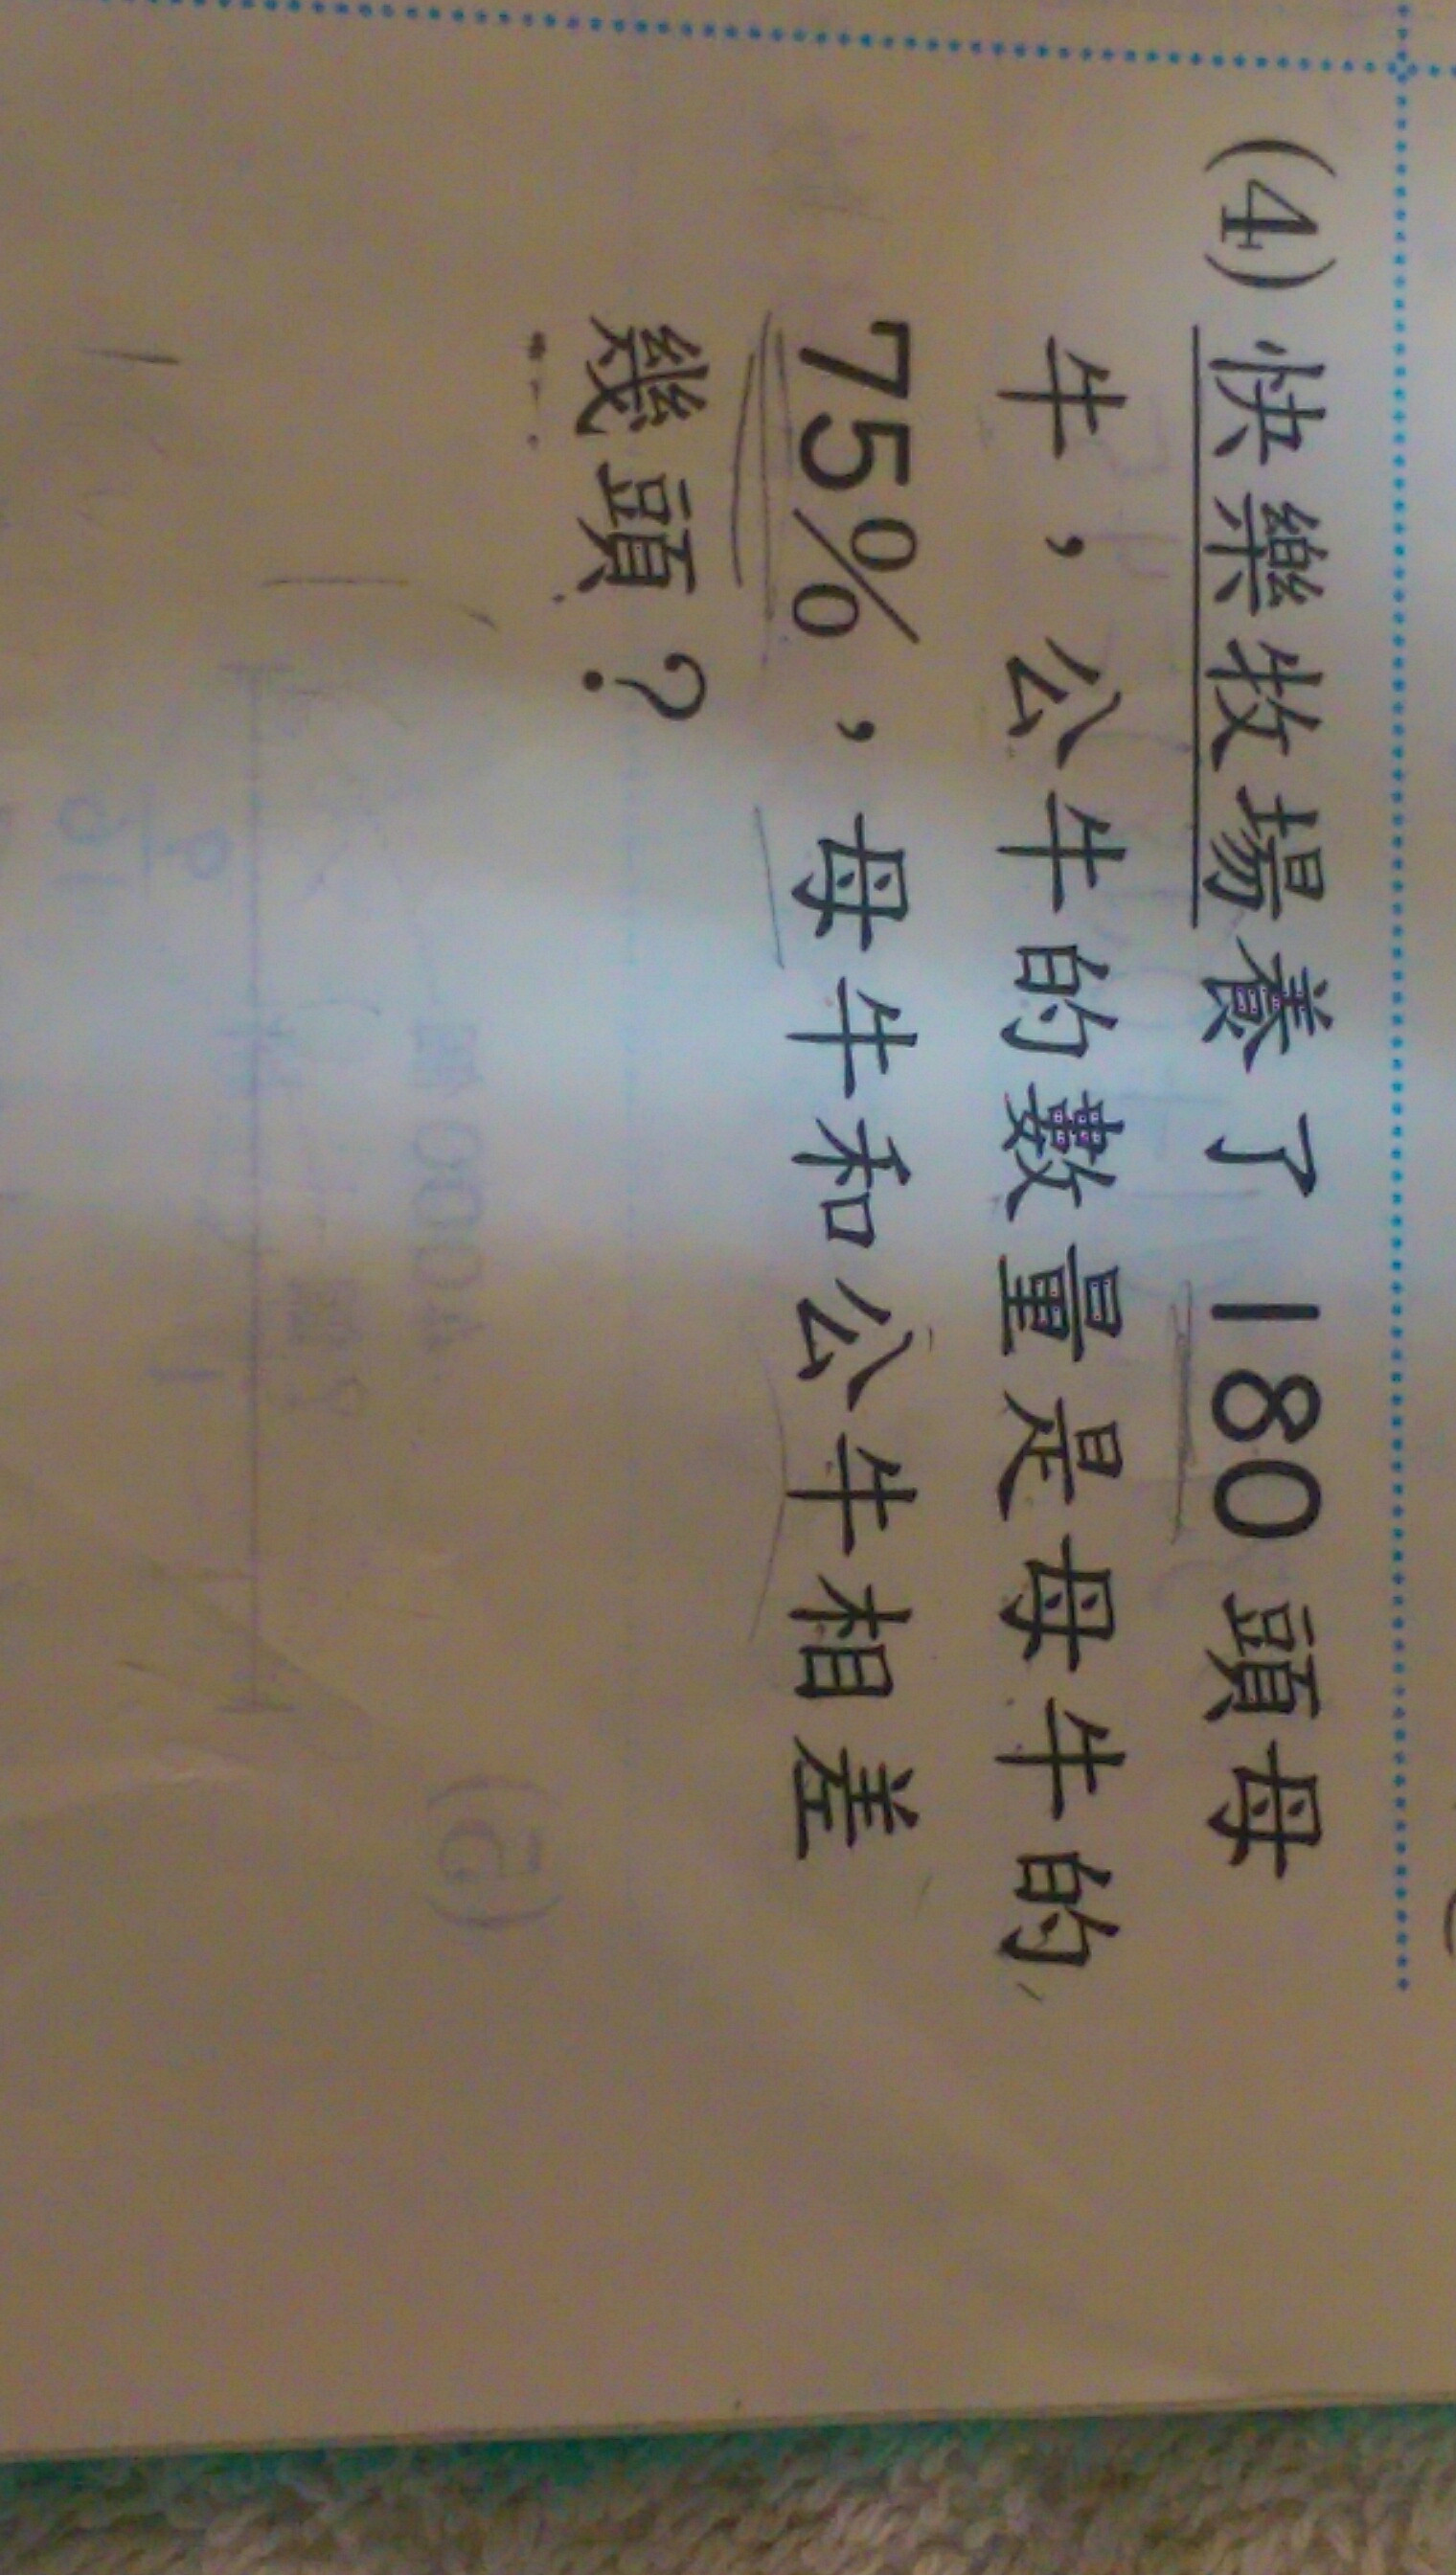 (4) 快樂牧場養了 180 頭母
牛，公牛的數量是母牛的
75%，母牛和公牛相差
幾頭？